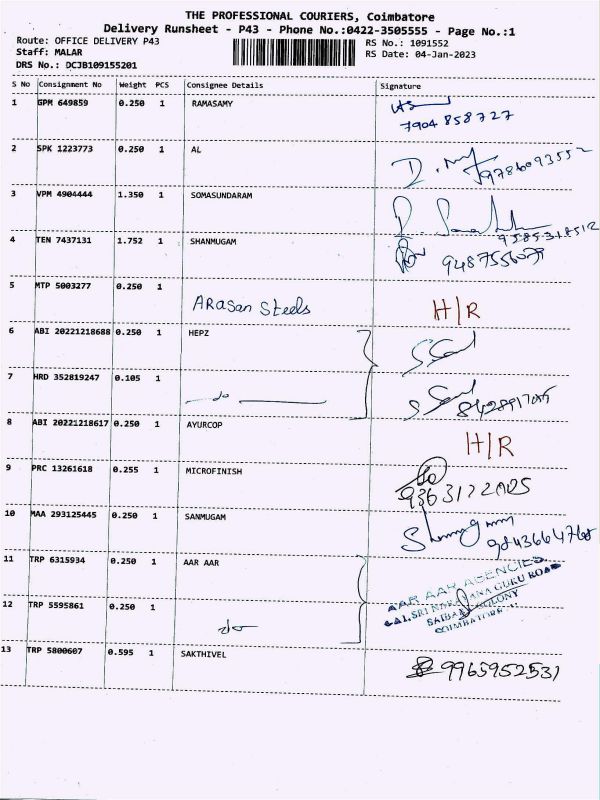 THE PROFESSIONAL COURIERS, Coimbatore
Delivery Runsheet - P43 - Phone No.:0422-3505555 - Page No.:1
Route: OFFICE DELIVERY P43 RS No.: 1091552
Staff: MALAR RS Date: 04-Jan-2023
DRS No.: DCJB109155201
S No Consignment No Weight PCS Consignee Details Signature
1 GPM 649859 0.250 1 RAMASAMY
7904 858727
2 SPK 1223773 0.250 1 AL
9786093552
3 VPM 4904444 1.350 1 SOMASUNDARAM
9585318512
4 TEN 7437131 1.752 1 SHANMUGAM
5 MTP 5003277 0.250 1
ARasan Steels H/R
6 ABI 20221218688 0.250 1 HEPZ
7 HRD 352819247 0.105 1
do
8 ABI 20221218617 0.250 1 AYURCOP
H/R
9 PRC 13261618 0.255 1 MICROFINISH
10 MAA 293125445 0.250 1 SANMUGAM
11 TRP 6315934 0.250 1 AAR AAR
AAR AAR AGENCIES
12 TRP 5595861 0.250 1
do
COLONY
13 TRP 5800607 0.595 1 SAKTHIVEL
9965952531